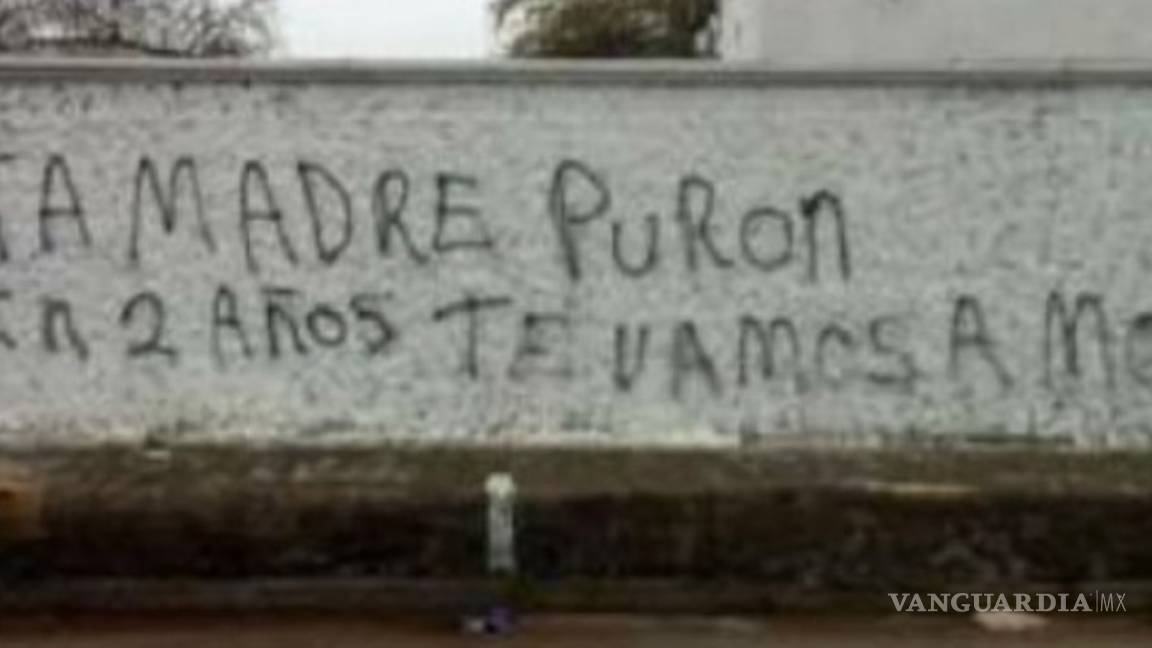 TA MADRE PURON
En 2 AÑOS TE VAMOS A
VANGUARDIA|MX